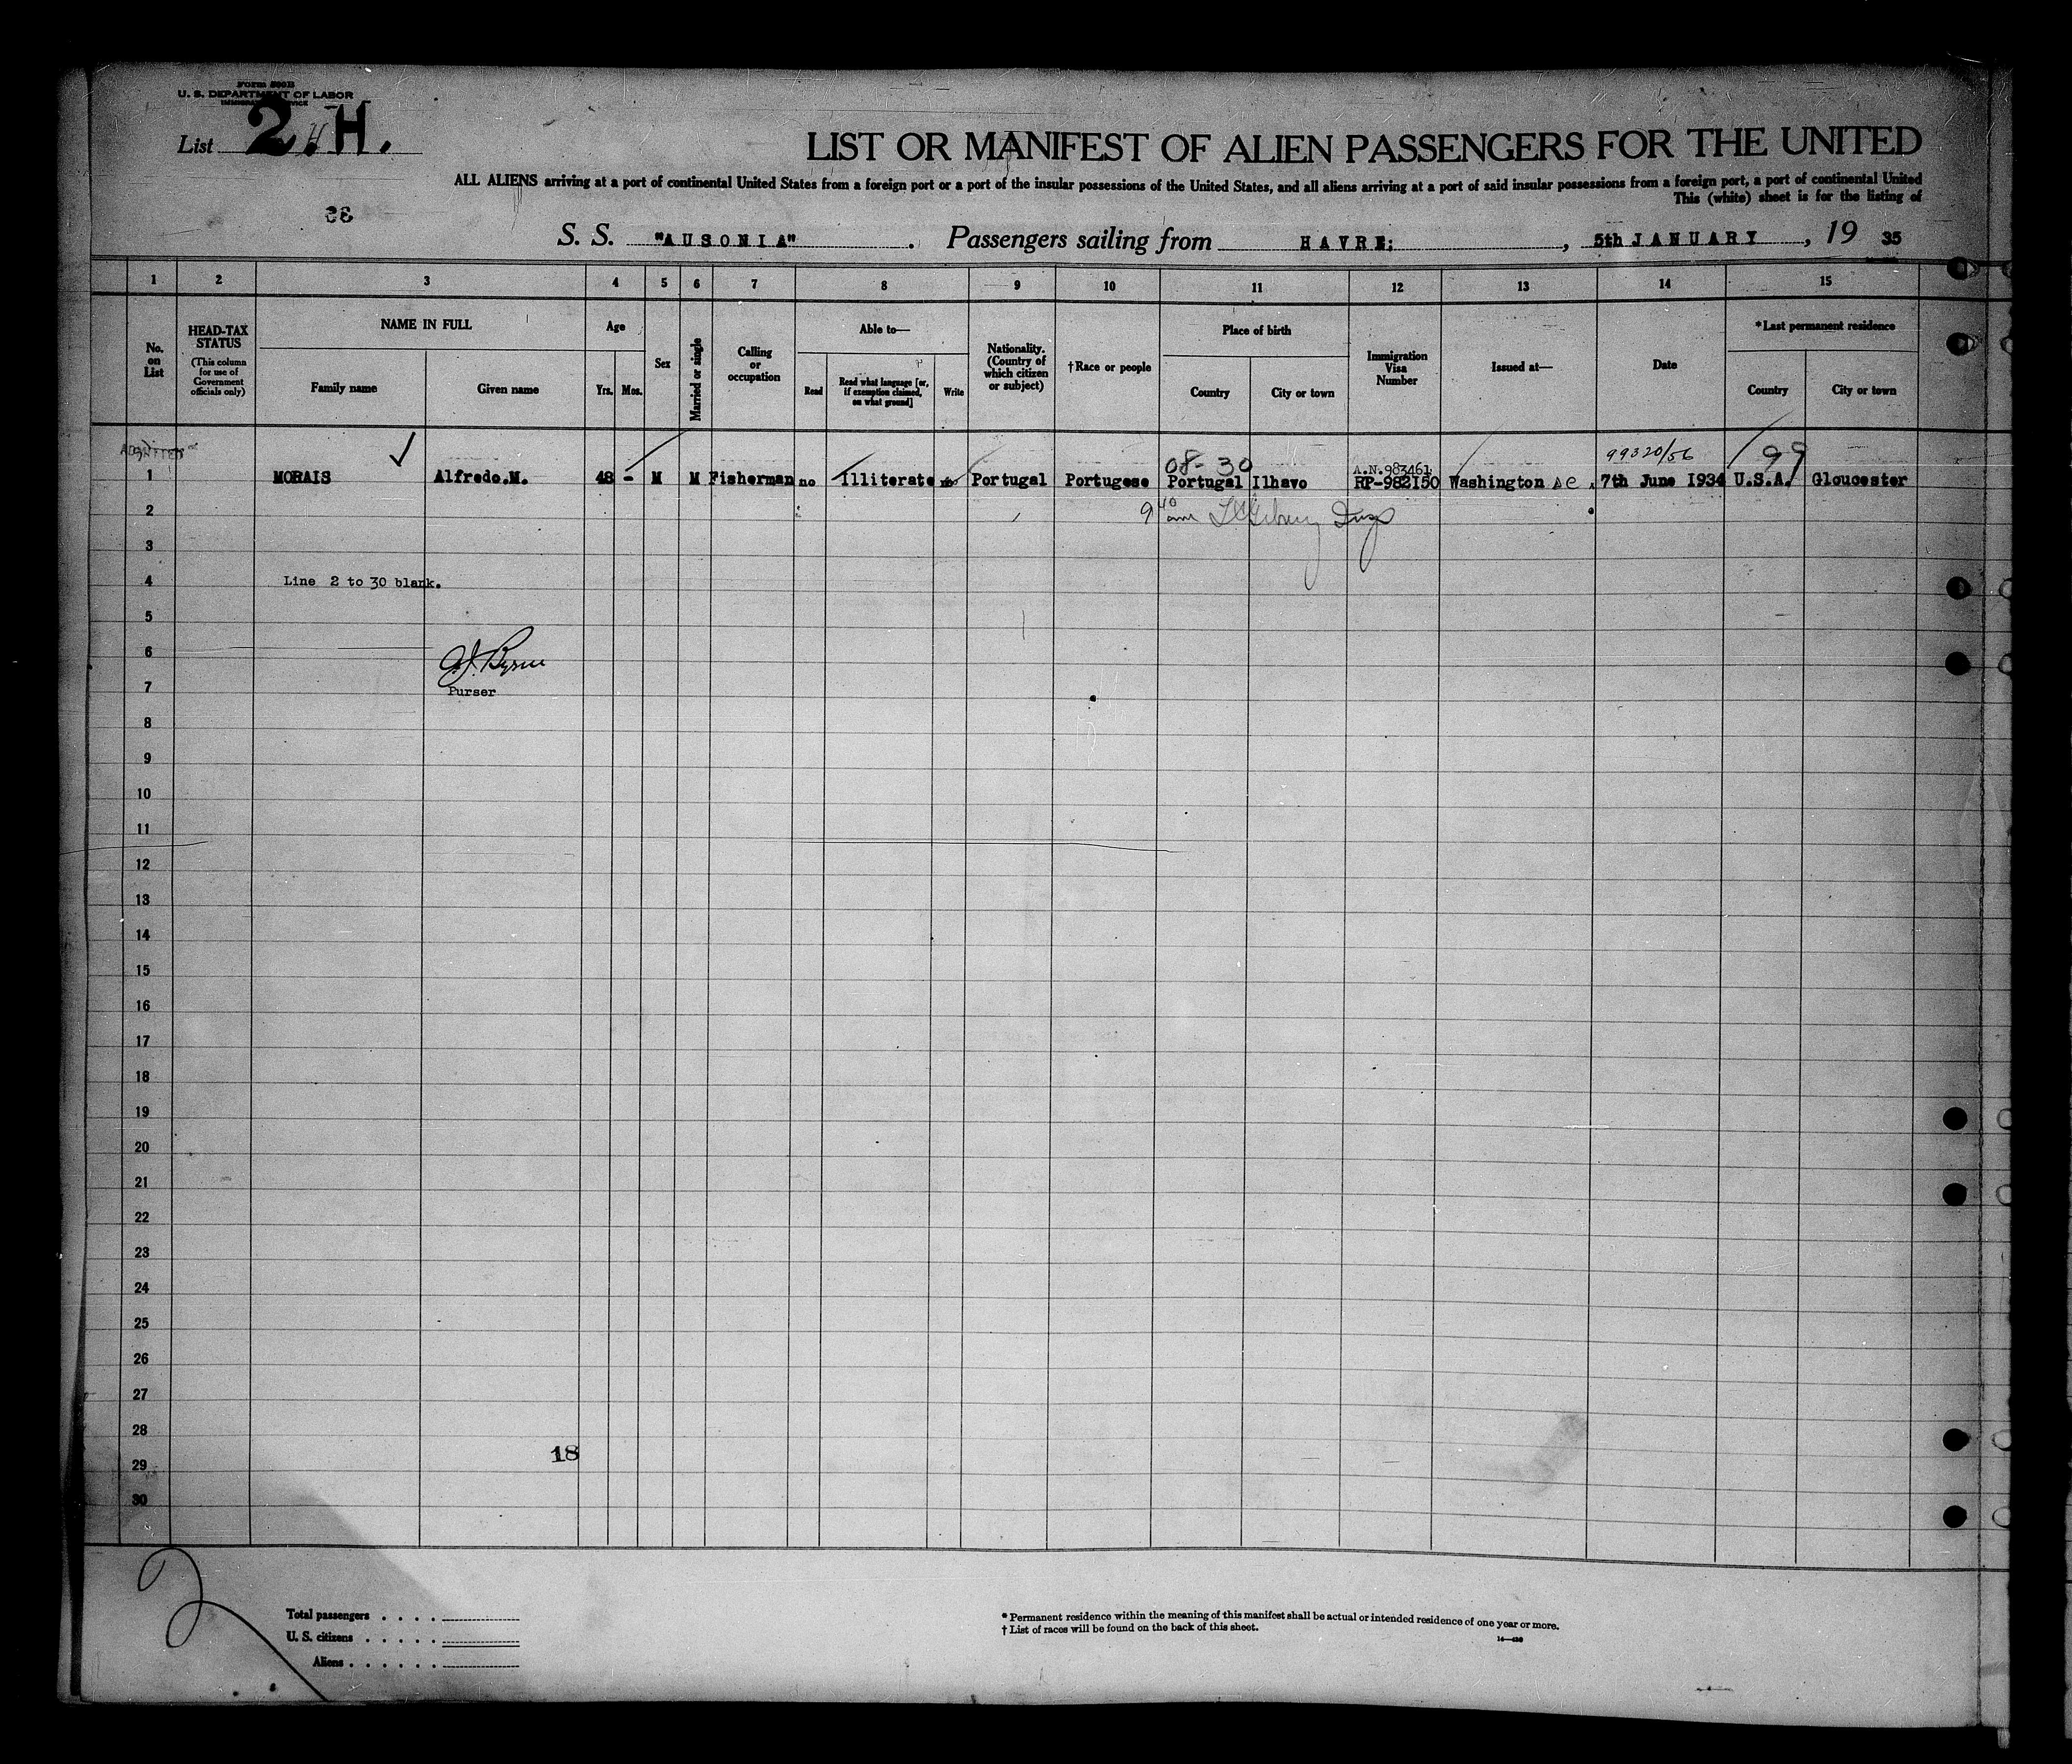 Form 500B
U. S. DEPARTMENT OF LABOR
IMMIGRATION SERVICE
List 2.H.
LIST OR MANIFEST OF ALIEN PASSENGERS FOR THE UNITED
ALL ALIENS arriving at a port of continental United States from a foreign port or a port of the insular possessions of the United States, and all aliens arriving at a port of said insular possessions from a foreign port, a port of continental United
This (white) sheet is for the listing of
S. S. "AUSONIA". Passengers sailing from HAVRE; , 5th JANUARY , 19 35
1 2 3 4 5 6 7 8 9 10 11 12 13 14 15
No. on List
HEAD-TAX STATUS (This column for use of Government officials only)
NAME IN FULL
Family name
Given name
Age
Yrs. Mos.
Sex
Married or single
Calling or occupation
Able to—
Read
Read what language [or, if exemption claimed, on what ground]
Write
Nationality. (Country of which citizen or subject)
†Race or people
Place of birth
Country
City or town
Immigration Visa Number
Issued at—
Date
*Last permanent residence
Country
City or town
ADMITTED
08-30
A.N.983461
99320/56
99
1 MORAIS Alfredo.M. 48 - M M Fisherman no Illiterate no Portugal Portugese Portugal Ilhavo RP-982150 Washington DC. 7th June 1934 U.S.A. Gloucester
2 9 40 am
3
4 Line 2 to 30 blank.
5
6 Byrne
7 Purser
8
9
10
11
12
13
14
15
16
17
18
19
20
21
22
23
24
25
26
27
28
18
29
30
Total passengers . . . .
U. S. citizens . . . . .
Aliens . . . . . .
* Permanent residence within the meaning of this manifest shall be actual or intended residence of one year or more.
† List of races will be found on the back of this sheet.